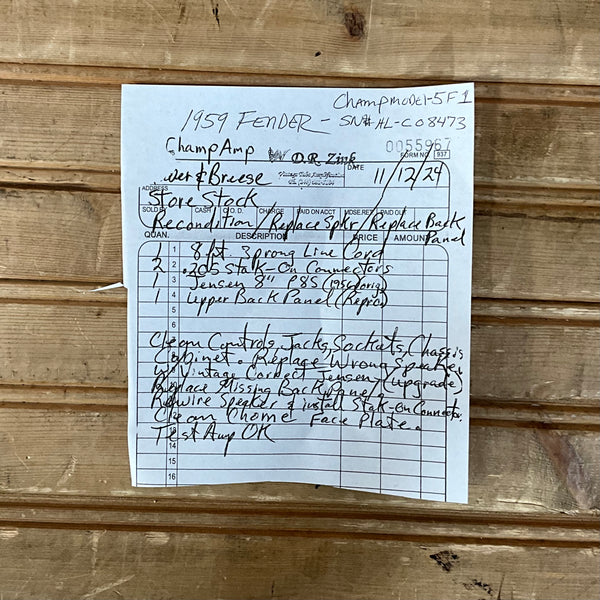 Champ Model - 5F1
1959 FENDER - SN# HL-C08473
0055967
Champ Amp W D.R. Zink FORM NO. 937
& Breese Vintage Tube Amplifiers DATE 11/12/24
ADDRESS
Store Stock
SOLD BY CASH C.O.D. CHARGE PAID ON ACCT MDSE. RET PAID OUT
Recondition / Replace Spkr / Replace Back Panel
QUAN. DESCRIPTION PRICE AMOUNT
1 1 8 ft. 3 prong Line Cord
2 2 .205 Stak-On Connectors
1 3 Jensen 8" P8S (1956) (orig)
1 4 Upper Back Panel (Repro)
5
Clean Controls, Jacks, Sockets, Chassis
Cabinet. Replace Wrong Speaker
w/ Vintage Correct Jensen (upgrade)
Replace Missing Back Panel
Rewire Speaker & install Stak-On Connector.
Clean Chome Face Plate.
Test Amp OK
14
15
16